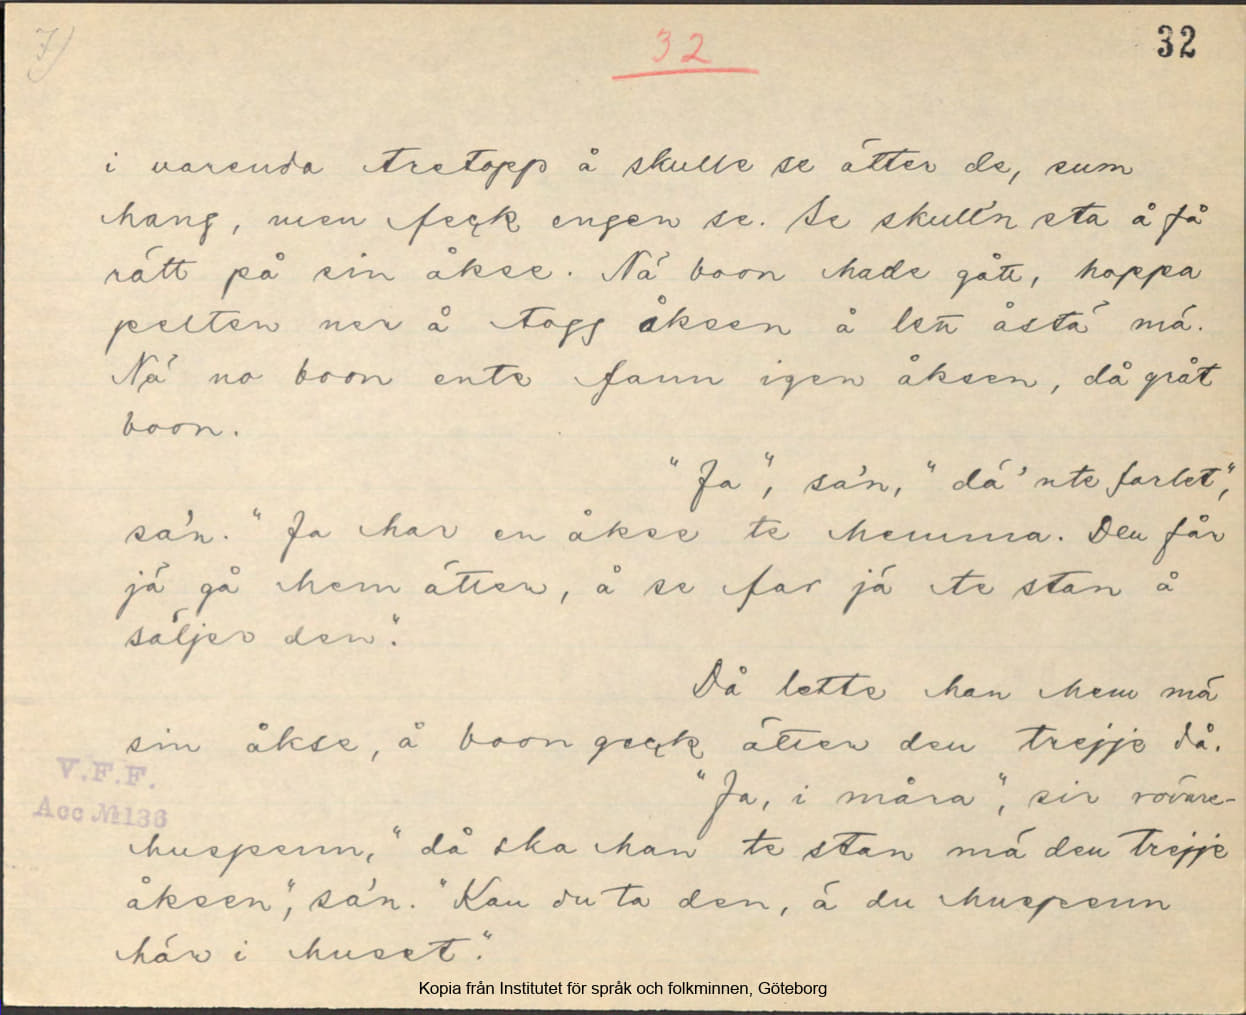 7)
32
32
i varenda tretopp å skulle se ätter de, sum
hang, men feck engen se. Se skull'n sta å få
rätt på sin åkse. Nä boon hade gått, hoppa
pelten ner å togg åksen å lett åstä mä.
Nä no boon ente fann igen åksen, då gråt
boon.
"Ja", sa'n, "dä'nte farlet",
sa'n. "Ja har en åkse te hemma. Den får
jä gå hem ätter, å se far jä te stan å
säljer den".
Då lette han hem mä
sin åkse, å boon geck ätter den trejje då.
"Ja, i måra", sir rövare-
huspenn, "då ska han te stan mä den trejje
åksen", sa'n. "Kan du ta den, ä du huspenn
här i huset."
V.F.F.
Acc № 136
Kopia från Institutet för språk och folkminnen, Göteborg